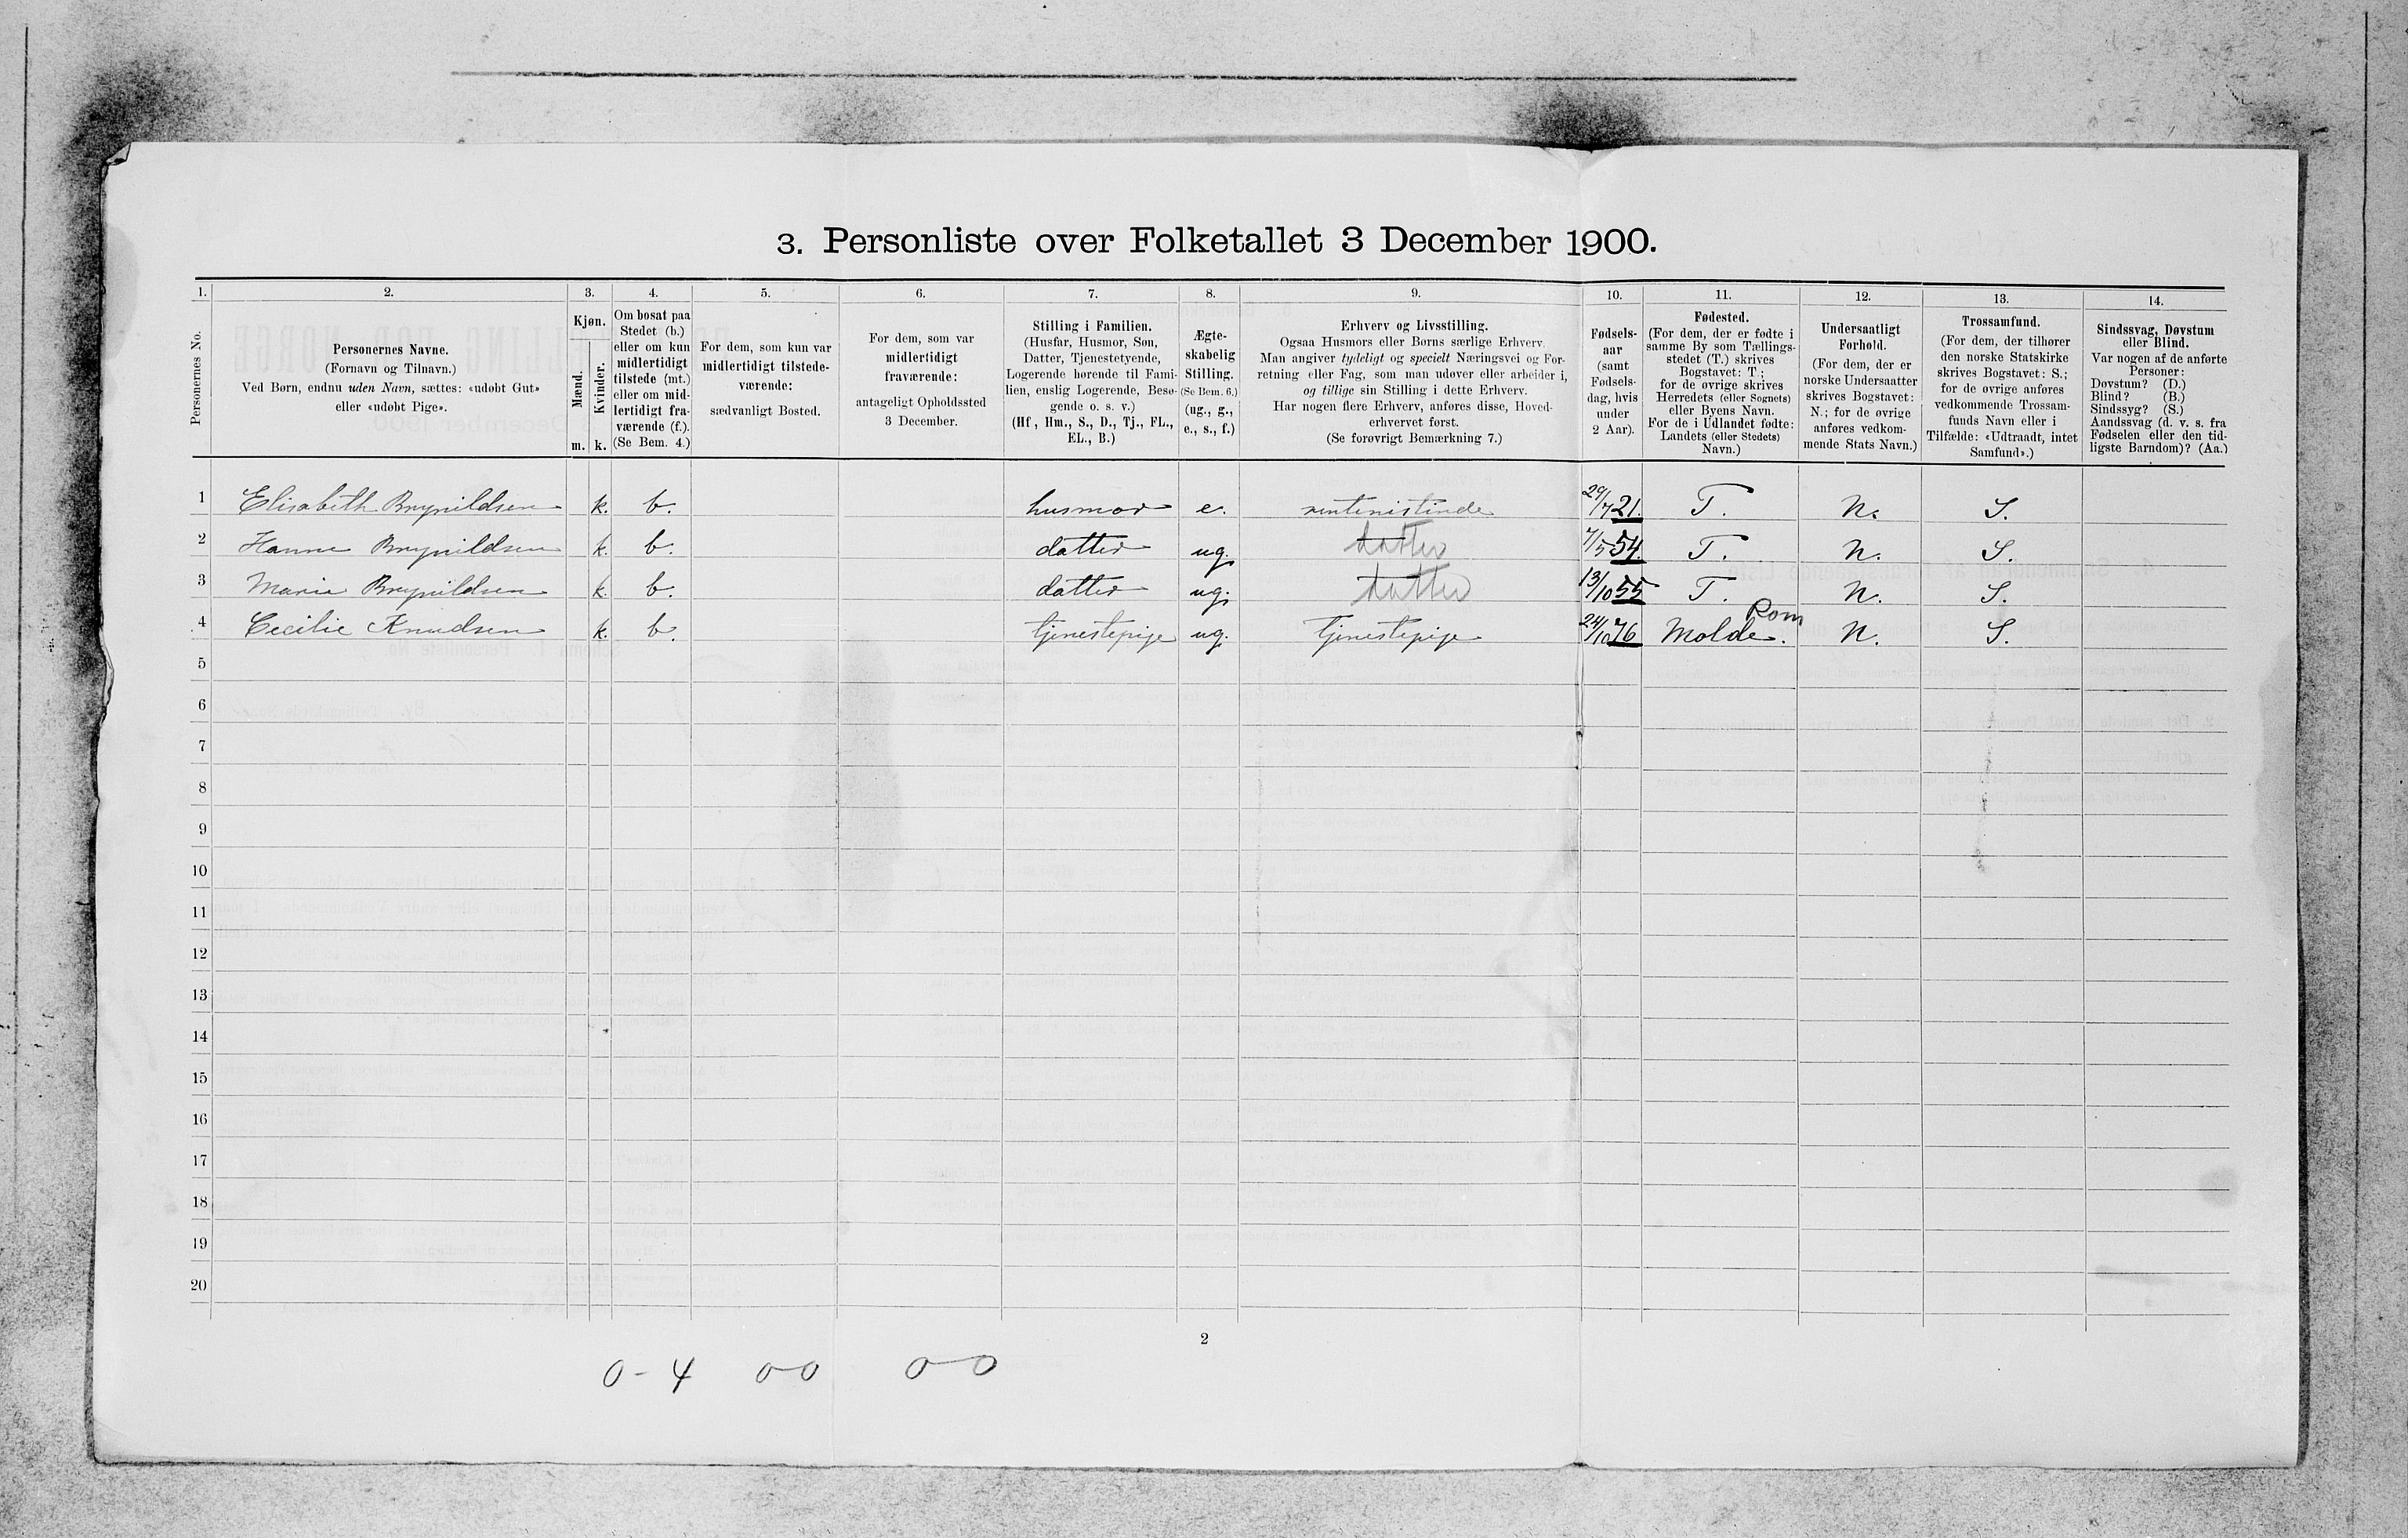 3. Personliste over Folketallet 3 December 1900.
1. 2. 3. 4. 5. 6. 7. 8. 9. 10. 11. 12. 13. 14.
Personernes No.
Personernes Navne.
(Fornavn og Tilnavn.)
Ved Børn, endnu uden Navn, sættes: «udøbt Gut»
eller «udøbt Pige».
Kjøn.
Mænd.
Kvinder.
m. k.
Om bosat paa
Stedet (b.)
eller om kun
midlertidigt
tilstede (mt.)
eller om mid-
lertidigt fra-
værende (f.).
(Se Bem. 4.)
For dem, som kun var
midlertidigt tilstede-
værende:
sædvanligt Bosted.
For dem, som var
midlertidigt
fraværende:
antageligt Opholdssted
3 December.
Stilling i Familien.
(Husfar, Husmor, Søn,
Datter, Tjenestetyende,
Logerende hørende til Fami-
lien, enslig Logerende, Besø-
gende o. s. v.)
(Hf, Hm., S., D., Tj., FL.,
EL., B.)
Ægte-
skabelig
Stilling.
(Se Bem. 6.)
(ug., g.,
e., s., f.)
Erhverv og Livsstilling.
Ogsaa Husmors eller Børns særlige Erhverv.
Man angiver tydeligt og specielt Næringsvei og For-
retning eller Fag, som man udøver eller arbeider i,
og tillige sin Stilling i dette Erhverv.
Har nogen flere Erhverv, anføres disse, Hoved-
erhvervet først.
(Se forøvrigt Bemærkning 7.)
Fødsels-
aar
(samt
Fødsels-
dag, hvis
under
2 Aar).
Fødested.
(For dem, der er fødte i
samme By som Tællings-
stedet (T.) skrives
Bogstavet: T;
for de øvrige skrives
Herredets (eller Sognets)
eller Byens Navn.
For de i Udlandet fødte:
Landets (eller Stedets)
Navn.)
Undersaatligt
Forhold.
(For dem, der er
norske Undersaatter
skrives Bogstavet:
N.; for de øvrige
anføres vedkom-
mende Stats Navn.)
Trossamfund.
(For dem, der tilhører
den norske Statskirke
skrives Bogstavet: S.;
for de øvrige anføres
vedkommende Trossam-
funds Navn eller i
Tilfælde: «Udtraadt, intet
Samfund».)
Sindssvag, Døvstum
eller Blind.
Var nogen af de anførte
Personer:
Døvstum? (D.)
Blind? (B.)
Sindssyg? (S.)
Aandssvag (d. v. s. fra
Fødselen eller den tid-
ligste Barndom)? (Aa.)
1 Elisabeth Brynildsen k. b. husmor e. rentenistinde 29/7 21. T. N. S.
2 Hanne Brynildsen k. b. datter ug. datter 7/5 54. T. N. S.
3 Marie Brynildsen k. b. datter ug. datter 13/10 55 T. N. S.
4 Cecilie Knudsen k. b. tjenestepige ug. Tjenestepige 24/10 76 Molde. Rom N. S.
5
6
7
8
9
10
11
12
13
14
15
16
17
18
19
20
2
0-4 0-0 0-0